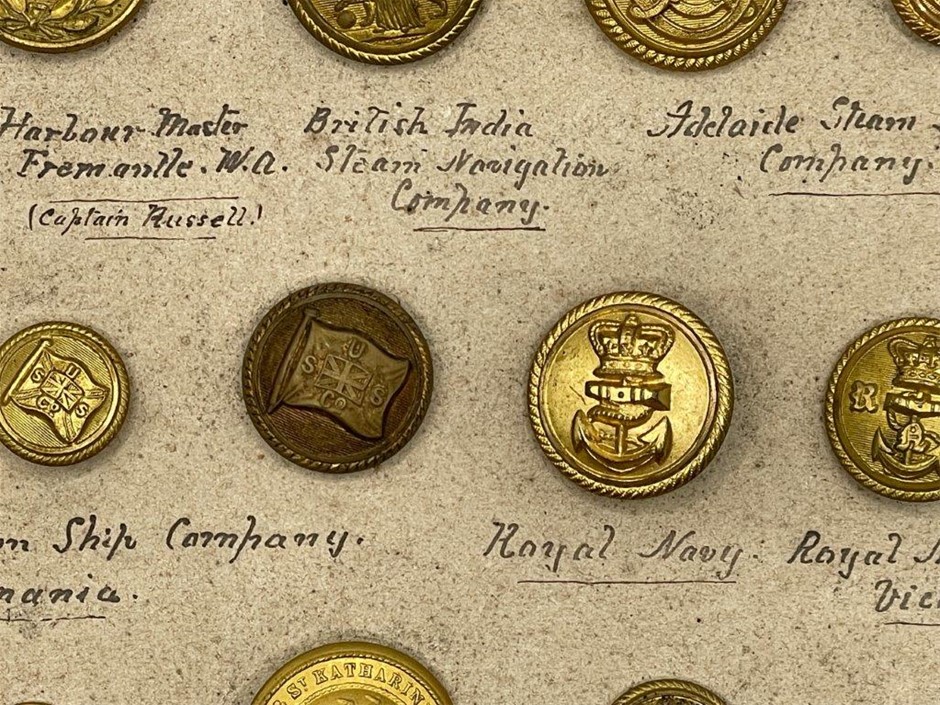 Harbour Master
Fremantle. W.A.
(Captain Russell.)
British India
Steam Navigation
Company.
Adelaide Steam
Company.
S U
Co S
S. A U
S S
Co
R
Ship Company.
mania.
Royal Navy.
Royal
Vic
ST KATHARIN